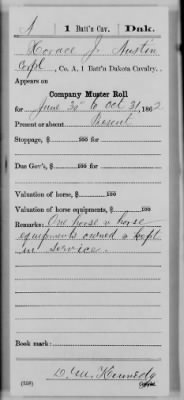 A 1 Batt'n Cav. Dak.
Horace J. Austin
Corpl, Co. A, 1 Batt'n Dakota Cavalry.
Appears on
Company Muster Roll
for June 30 to Oct 31, 1862
Present or absent Present
Stoppage, $ 100
Due Gov't, $ 100
Valuation of horse, $ 100
Valuation of horse equipments, $ 100
Remarks: One horse & horse
equipments owned & kept
in service.
Book mark:
D. M. Kennedy
(358) Copyist.